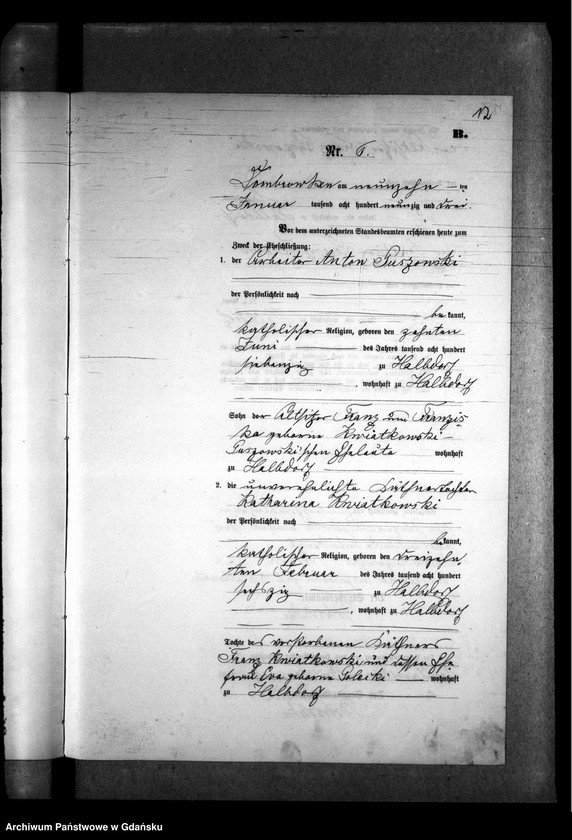 12
B.
Nr. 6.
Dombrowken am neunzehn ten
Januar tausend acht hundert neunzig und drei.
Vor dem unterzeichneten Standesbeamten erschienen heute zum
Zweck der Eheschließung:
1. der Arbeiter Anton Guszowski
der Persönlichkeit nach
be kannt,
katholischer Religion, geboren den zehnten
Juni des Jahres tausend acht hundert
siebenzig zu Halbdorf
, wohnhaft zu Halbdorf
Sohn der Altsitzer Franz und Franzis-
ka geborne Kwiatkowski-
Guszowski'schen Eheleute wohnhaft
zu Halbdorf
2. die unverehelichte Käthnertochter
Katharina Kwiatkowski
der Persönlichkeit nach
be kannt,
katholischer Religion, geboren den dreizehn,
ten Februar des Jahres tausend acht hundert
sechszig zu Halbdorf
, wohnhaft zu Halbdorf
Tochte des verstorbenen Käthners
Franz Kwiatkowski und dessen Ehe,
frau Eva geborne wohnhaft
zu Halbdorf
Archiwum Państwowe w Gdańsku